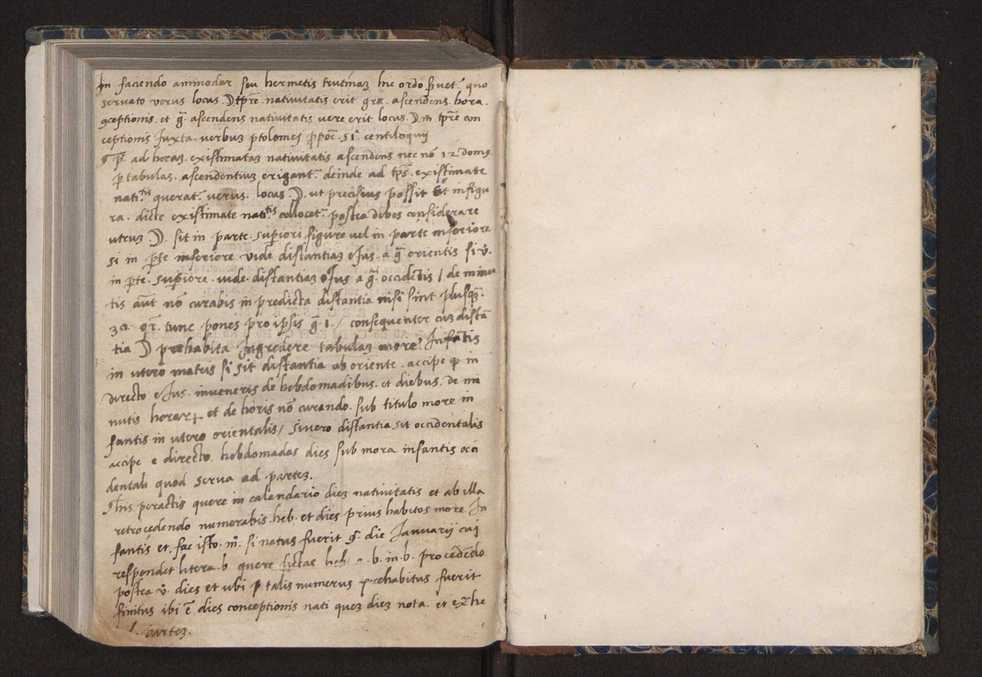 In faciendo animodar seu hermetis trutinaz hic ordo ſvuet. quo
servato verus locus ☽ tp̄re. nativitatis erit gra. ascendens. hora.
9ceptionis. et ḡ ascendens nativitatis vere erit locus. ☽ in tp̄re con
ceptionis Juxta. verbuz ptolomej ꝓpōe. 51. centiloquij
ad horaz. existimataz nativitatis ascendens nec nō 12 domꝰ
ꝑ tabulas. ascendentiuz erigant. deinde ad tp̄s. existimate
nati.tis querat. verus. locus ☽. ut precisius possit et in figu
ra. dicte existimate nati.tis collocet. postea debes considerare
utruz ☽. sit in parte. superiori figure vel in parte inferiore
si in ꝑte inferiore. vide distantiaz eJus. a ḡ orientis si v̄.
in ꝑte. superiore. vide. distantiaz eJus a ḡ. occidētis / de minu
tis aūt nō curabis in predicta distantia nisi sint plusqz.
30 tunc pones pro ipsis ḡ 1. / consequenter cuz distā
tia ☽ prehabita Ingredere tabulaz more Infātis
in utero matris si sit distantia ab oriente. accipe in
directo eJus. inveneris de hebdomadibus. et diebus. de mi
nutis horarꝝ et de horis nō curando. sub titulo more in
fantis in utero orientalis / Sivero distantia sit occidentalis
accipe e directo. hebdomadas dies sub mora infantis occi
dentali quod serva ad partez.
his peractis quere in calendario diez nativitatis et ab illa
retrocedendo numerabis. heb. et dies prius habitos more In
fantis et. fac isto. m̄. si natus fuerit die Januarij cui
respondet litera. b quere dictas heb. a. b. in. b. procedēdo
postea v̄. dies et ubi talis numerus prehabitus fuerit
finitus ibi ē dies conceptionis nati quez diez nota. et
partez.